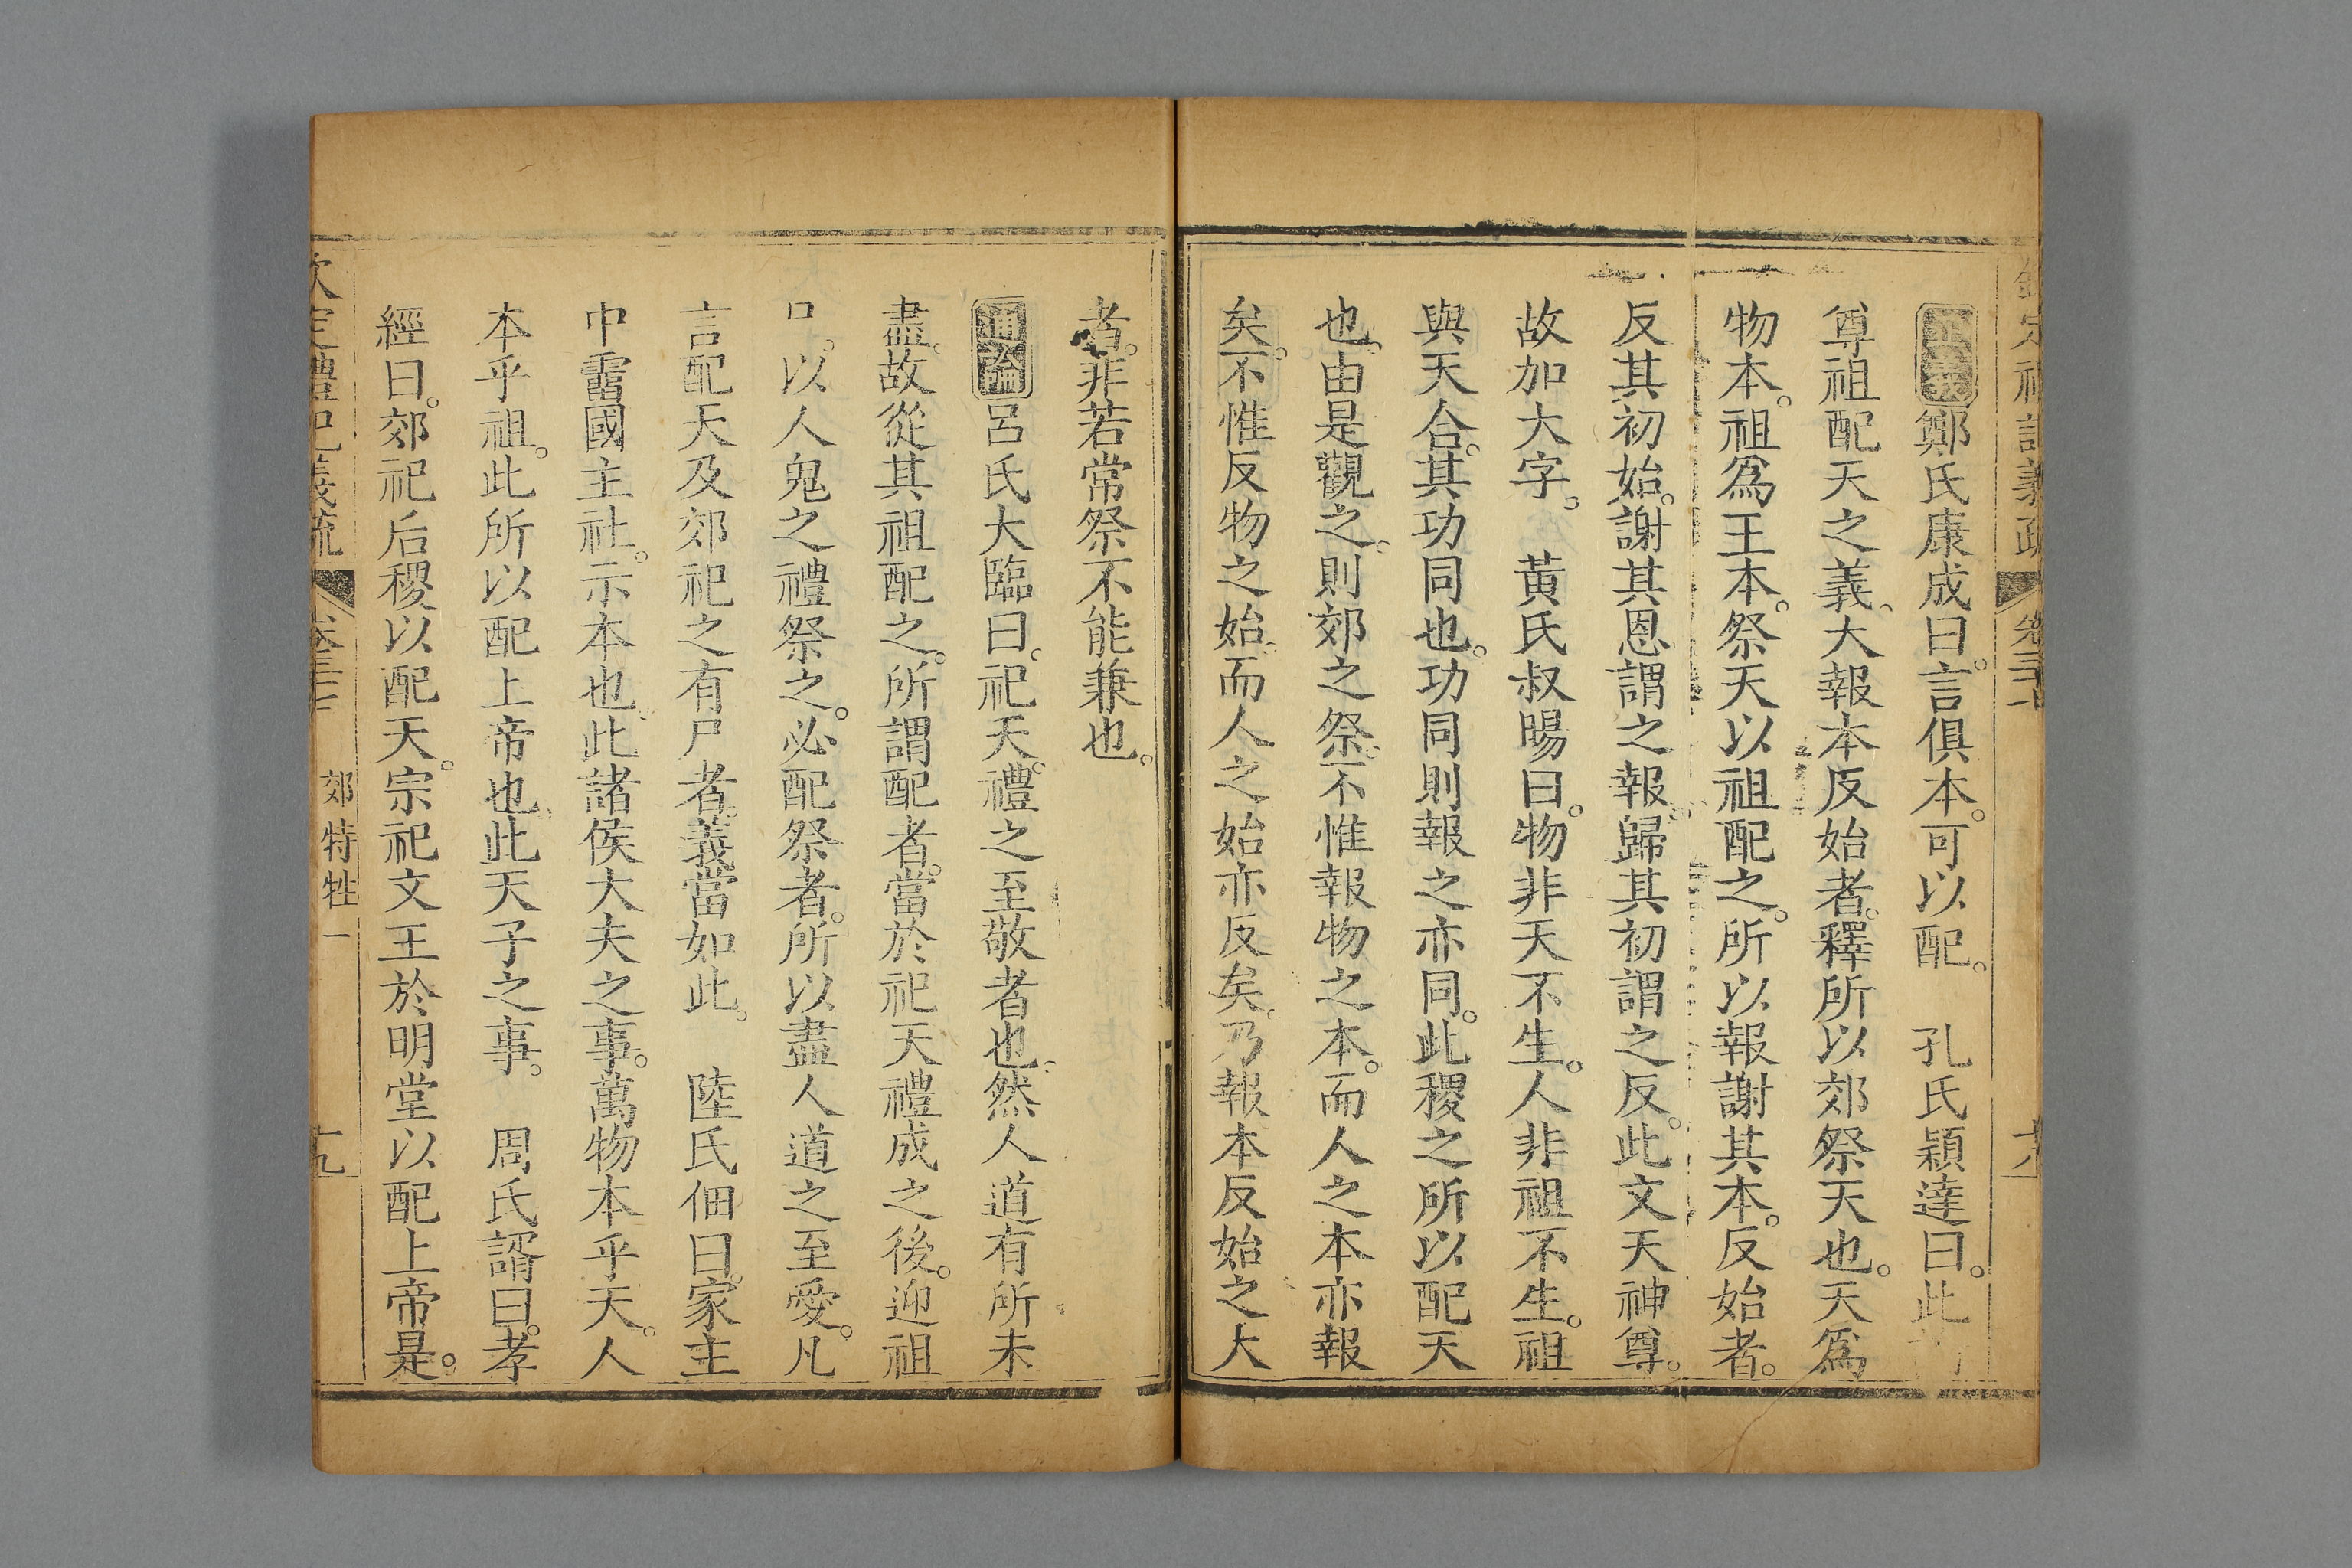 欽定禮記義疏 卷三十七 十八
正義鄭氏康成曰。言俱本。可以配。 孔氏穎達曰。此
尊祖配天之義、大報本反始者。釋所以郊祭天也。天爲
物本。祖爲王本。祭天以祖配之。所以報謝其本。反始者。
反其初始。謝其恩謂之報。歸其初謂之反。此文天神尊。
故加大字。 黃氏叔暘曰。物非天不生。人非祖不生。祖
與天合。其功同也。功同則報之亦同。此稷之所以配天
也。由是觀之。則郊之祭。不惟報物之本。而人之本亦報
矣。不惟反物之始。而人之始亦反矣。乃報本反始之大
者。非若常祭不能兼也。
通論呂氏大臨曰。祀天。禮之至敬者也。然人道有所未
盡。故從其祖配之。所謂配者。當於祀天禮成之後。迎祖
尸。以人鬼之禮祭之。必配祭者。所以盡人道之至愛。凡
言配天及郊祀之有尸者。義當如此。 陸氏佃曰。家主
中霤國主社。示本也。此諸侯大夫之事。萬物本乎天。人
本乎祖。此所以配上帝也。此天子之事。 周氏諝曰。孝
經曰。郊祀后稷以配天。宗祀文王於明堂以配上帝是。
欽定禮記義疏 卷三十七 郊特牲一 十九